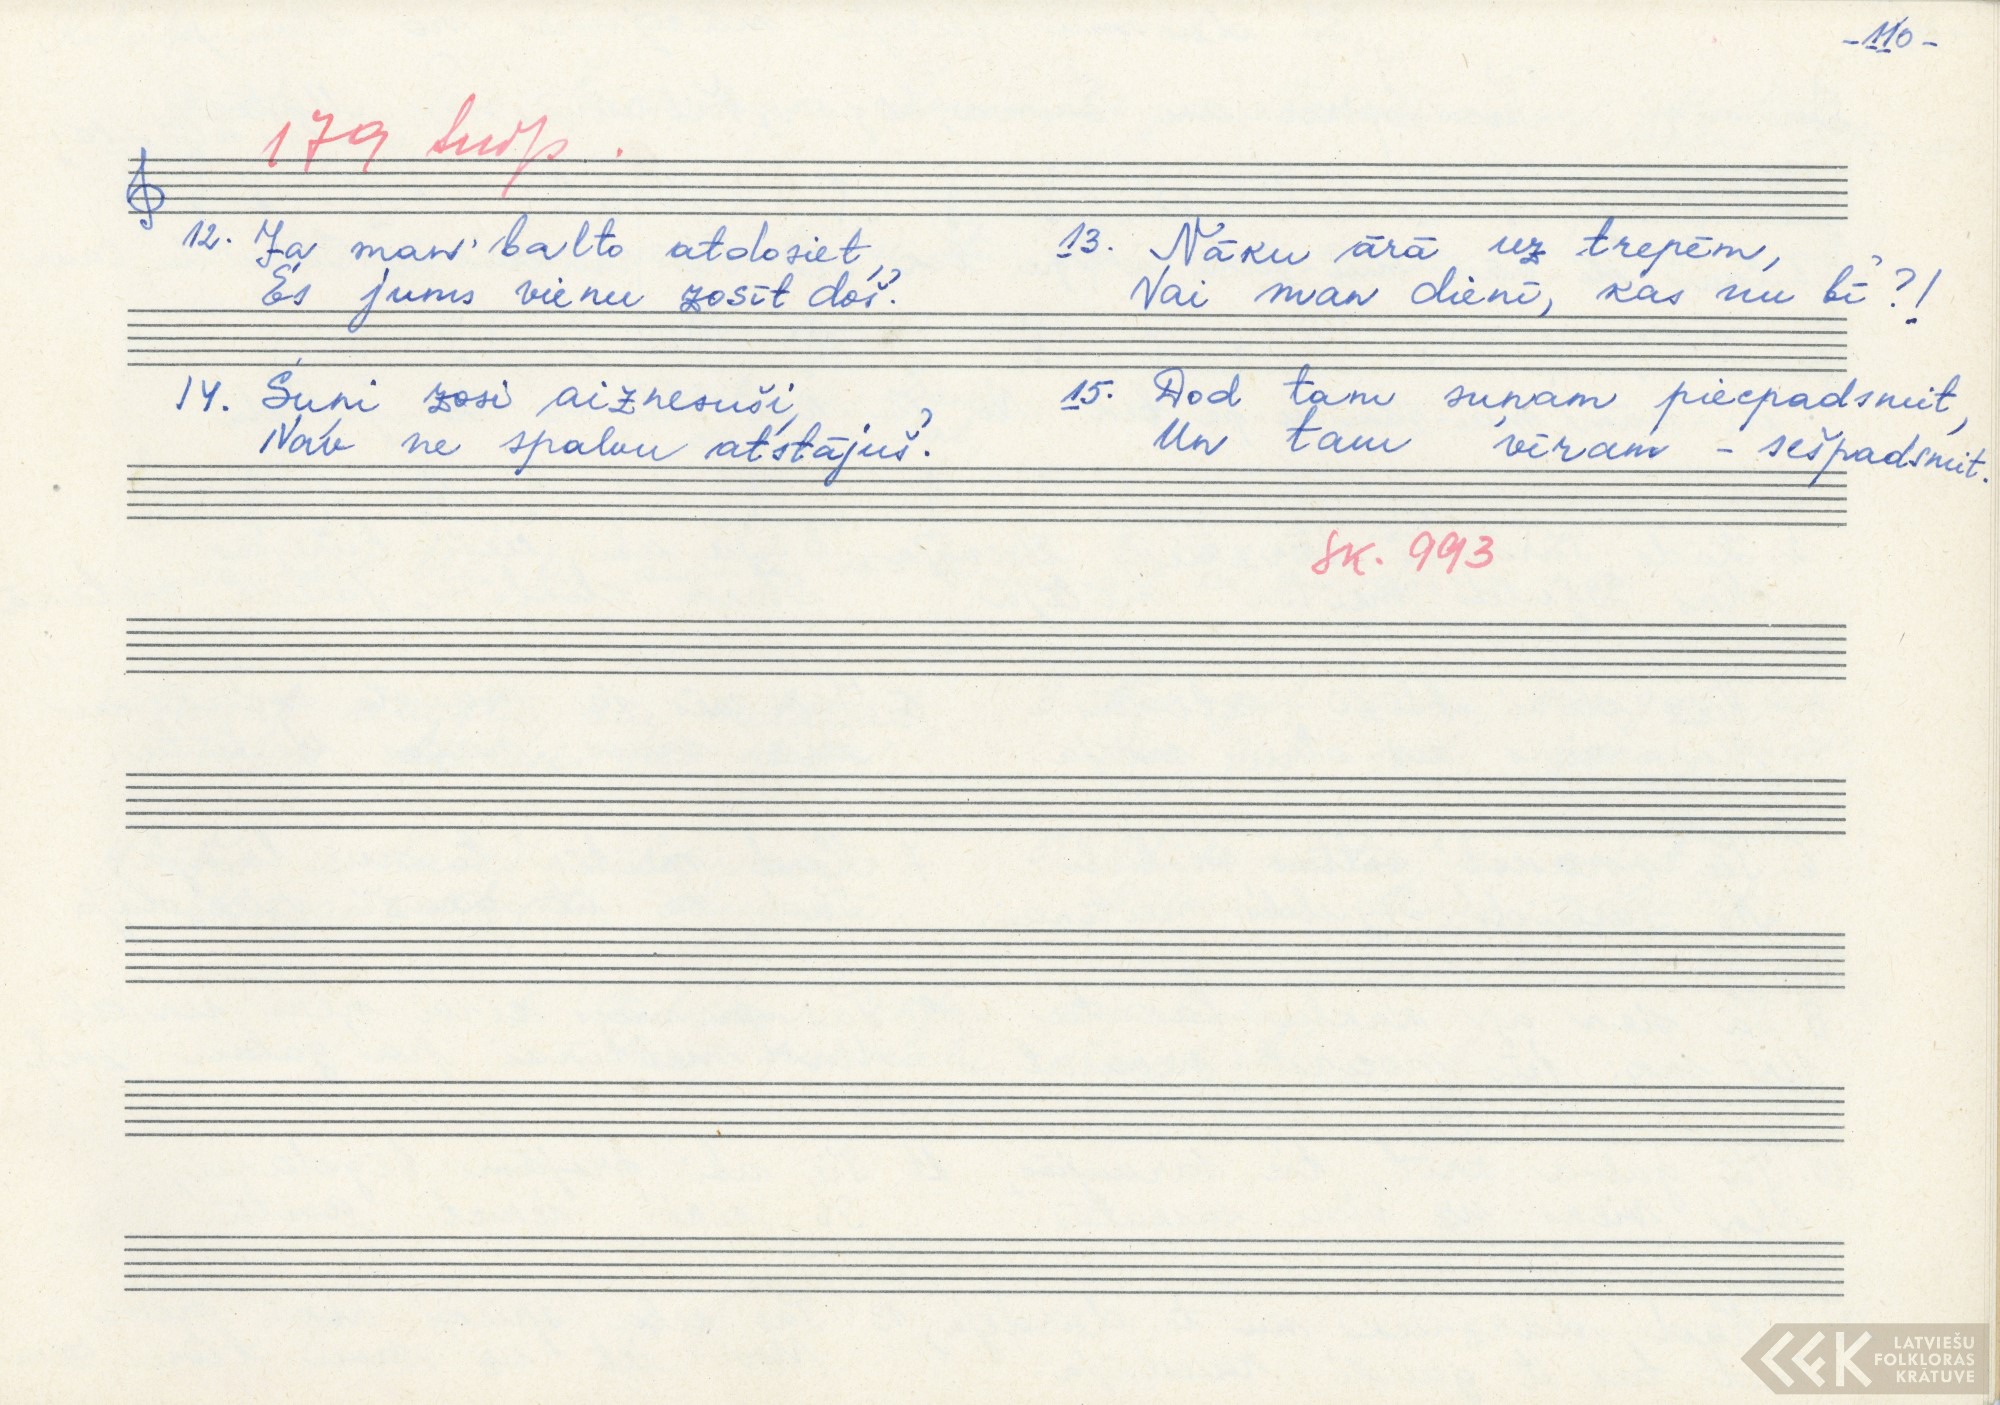 -110-
179 turp.
12. Ja man balto atdosiet,
Es jums vienu zosīt doš'.
13. Nāku ārā uz trepēm,
Vai man dieni, kas nu bī'?!
14. Suņi zosi aiznesuši,
Nav ne spalvu atstājuš'.
15. Dod tam sunam piecpadsmit,
Un tam vīram - sešpadsmit.
SK. 993
LATVIEŠU
FOLKLORAS
KRĀTUVE